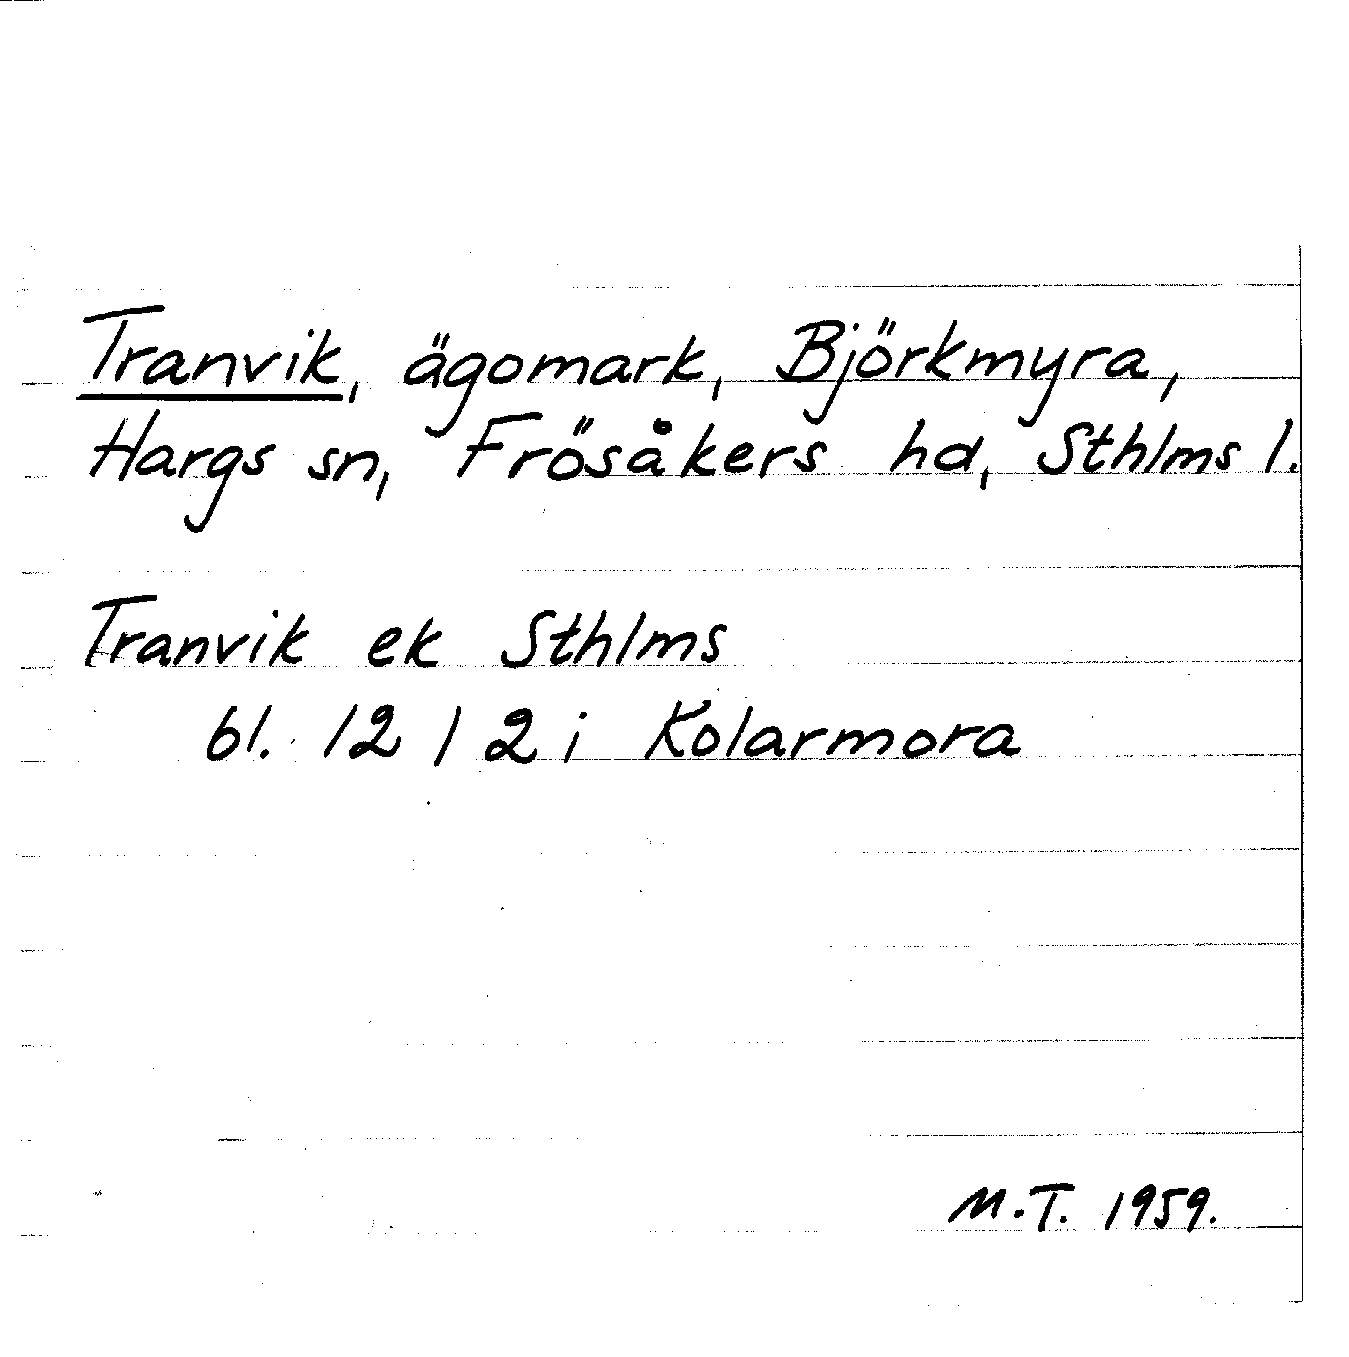 Tranvik, ägomark, Björkmyra,
Hargs sn, Frösåkers hd, Sthlms l.
Tranvik ek Sthlms
bl. 12 I 2 i Kolarmora
M.T. 1959.